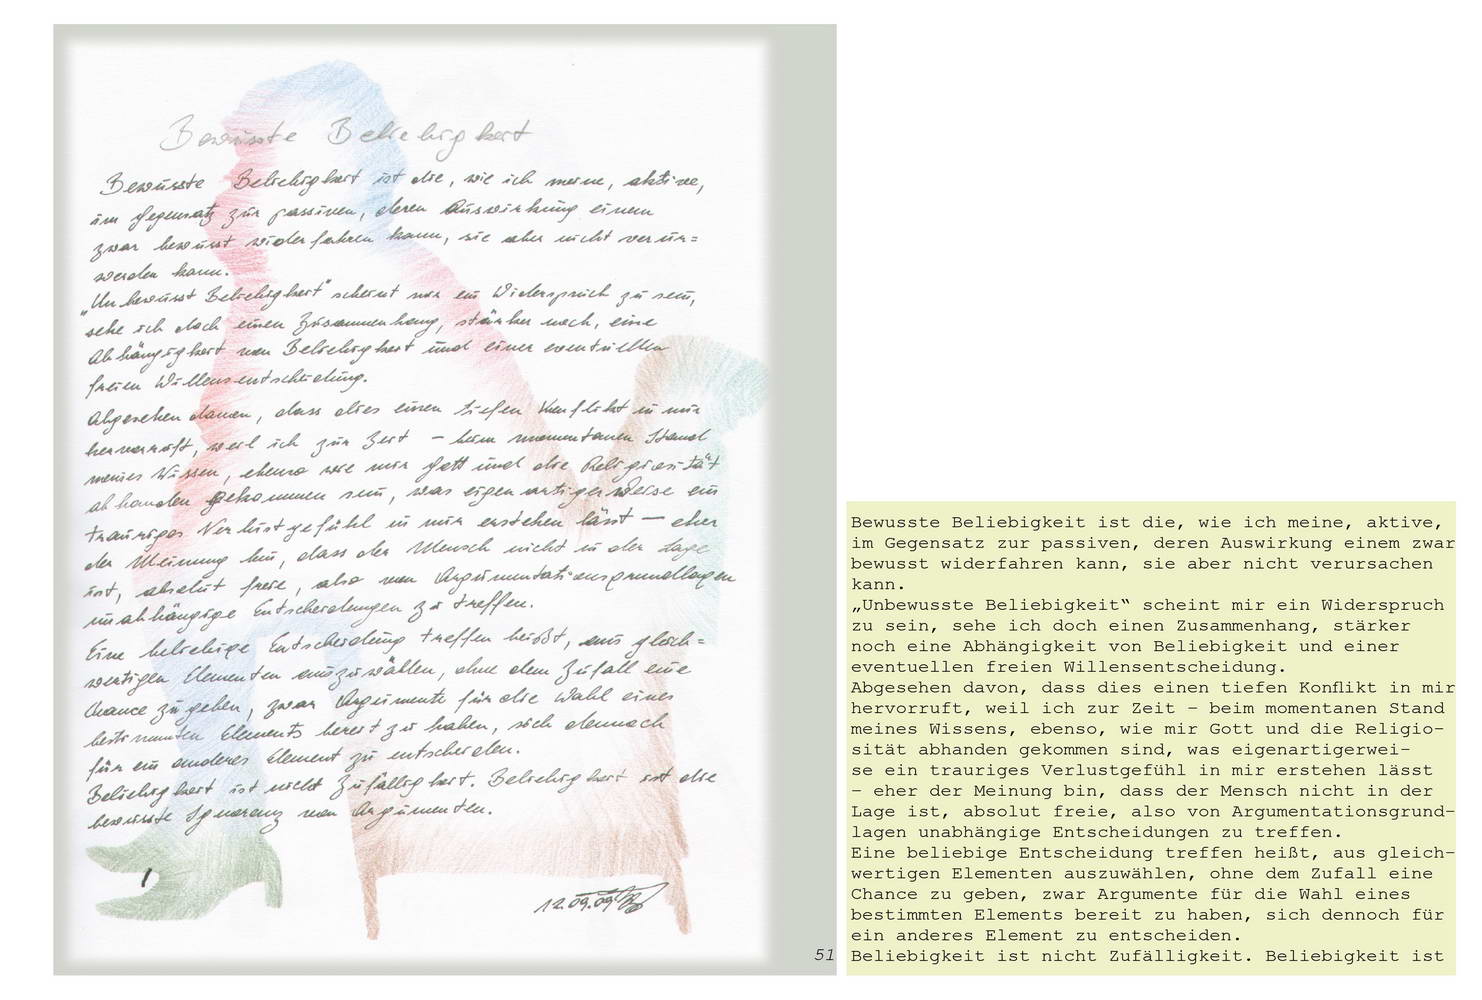 Bewusste Beliebigkeit
Bewusste Beliebigkeit ist die, wie ich meine, aktive,
im Gegensatz zur passiven, deren Auswirkung einem
zwar bewusst widerfahren kann, sie aber nicht verur=
werden kann.
„Unbewusst Beliebigkeit" scheint mir ein Widerspruch zu sein,
sehe ich doch einen Zusammenhang, stärker noch, eine
Abhängigkeit von Beliebigkeit und einer eventuellen
freien Willensentscheidung.
Abgesehen davon, dass dies einen tiefen Konflikt in mir
hervorruft, weil ich zur Zeit – beim momentanen Stand
meines Wissen, ebenso wie mir Gott und die Religiosität
abhanden gekommen sein, was eigenartigerweise ein
trauriges Verlustgefühl in mir erstehen lässt – eher
der Meinung bin, dass der Mensch nicht in der Lage
ist, absolut freie, also von Argumentationsgrundlagen
unabhängige Entscheidungen zu treffen.
Eine beliebige Entscheidung treffen heißt, aus gleich=
wertigen Elementen auszuwählen, ohne dem Zufall eine
Chance zu geben, zwar Argumente für die Wahl eines
bestimmten Elements bereit zu haben, sich dennoch
für ein anderes Element zu entscheiden.
Beliebigkeit ist nicht Zufälligkeit. Beliebigkeit ist die
bewusste Ignoranz von Argumenten.
12.09.09
51
Bewusste Beliebigkeit ist die, wie ich meine, aktive,
im Gegensatz zur passiven, deren Auswirkung einem zwar
bewusst widerfahren kann, sie aber nicht verursachen
kann.
„Unbewusste Beliebigkeit“ scheint mir ein Widerspruch
zu sein, sehe ich doch einen Zusammenhang, stärker
noch eine Abhängigkeit von Beliebigkeit und einer
eventuellen freien Willensentscheidung.
Abgesehen davon, dass dies einen tiefen Konflikt in mir
hervorruft, weil ich zur Zeit – beim momentanen Stand
meines Wissens, ebenso, wie mir Gott und die Religio-
sität abhanden gekommen sind, was eigenartigerwei-
se ein trauriges Verlustgefühl in mir erstehen lässt
– eher der Meinung bin, dass der Mensch nicht in der
Lage ist, absolut freie, also von Argumentationsgrund-
lagen unabhängige Entscheidungen zu treffen.
Eine beliebige Entscheidung treffen heißt, aus gleich-
wertigen Elementen auszuwählen, ohne dem Zufall eine
Chance zu geben, zwar Argumente für die Wahl eines
bestimmten Elements bereit zu haben, sich dennoch für
ein anderes Element zu entscheiden.
Beliebigkeit ist nicht Zufälligkeit. Beliebigkeit ist